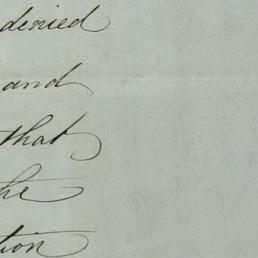 denied
and
that
the
tion